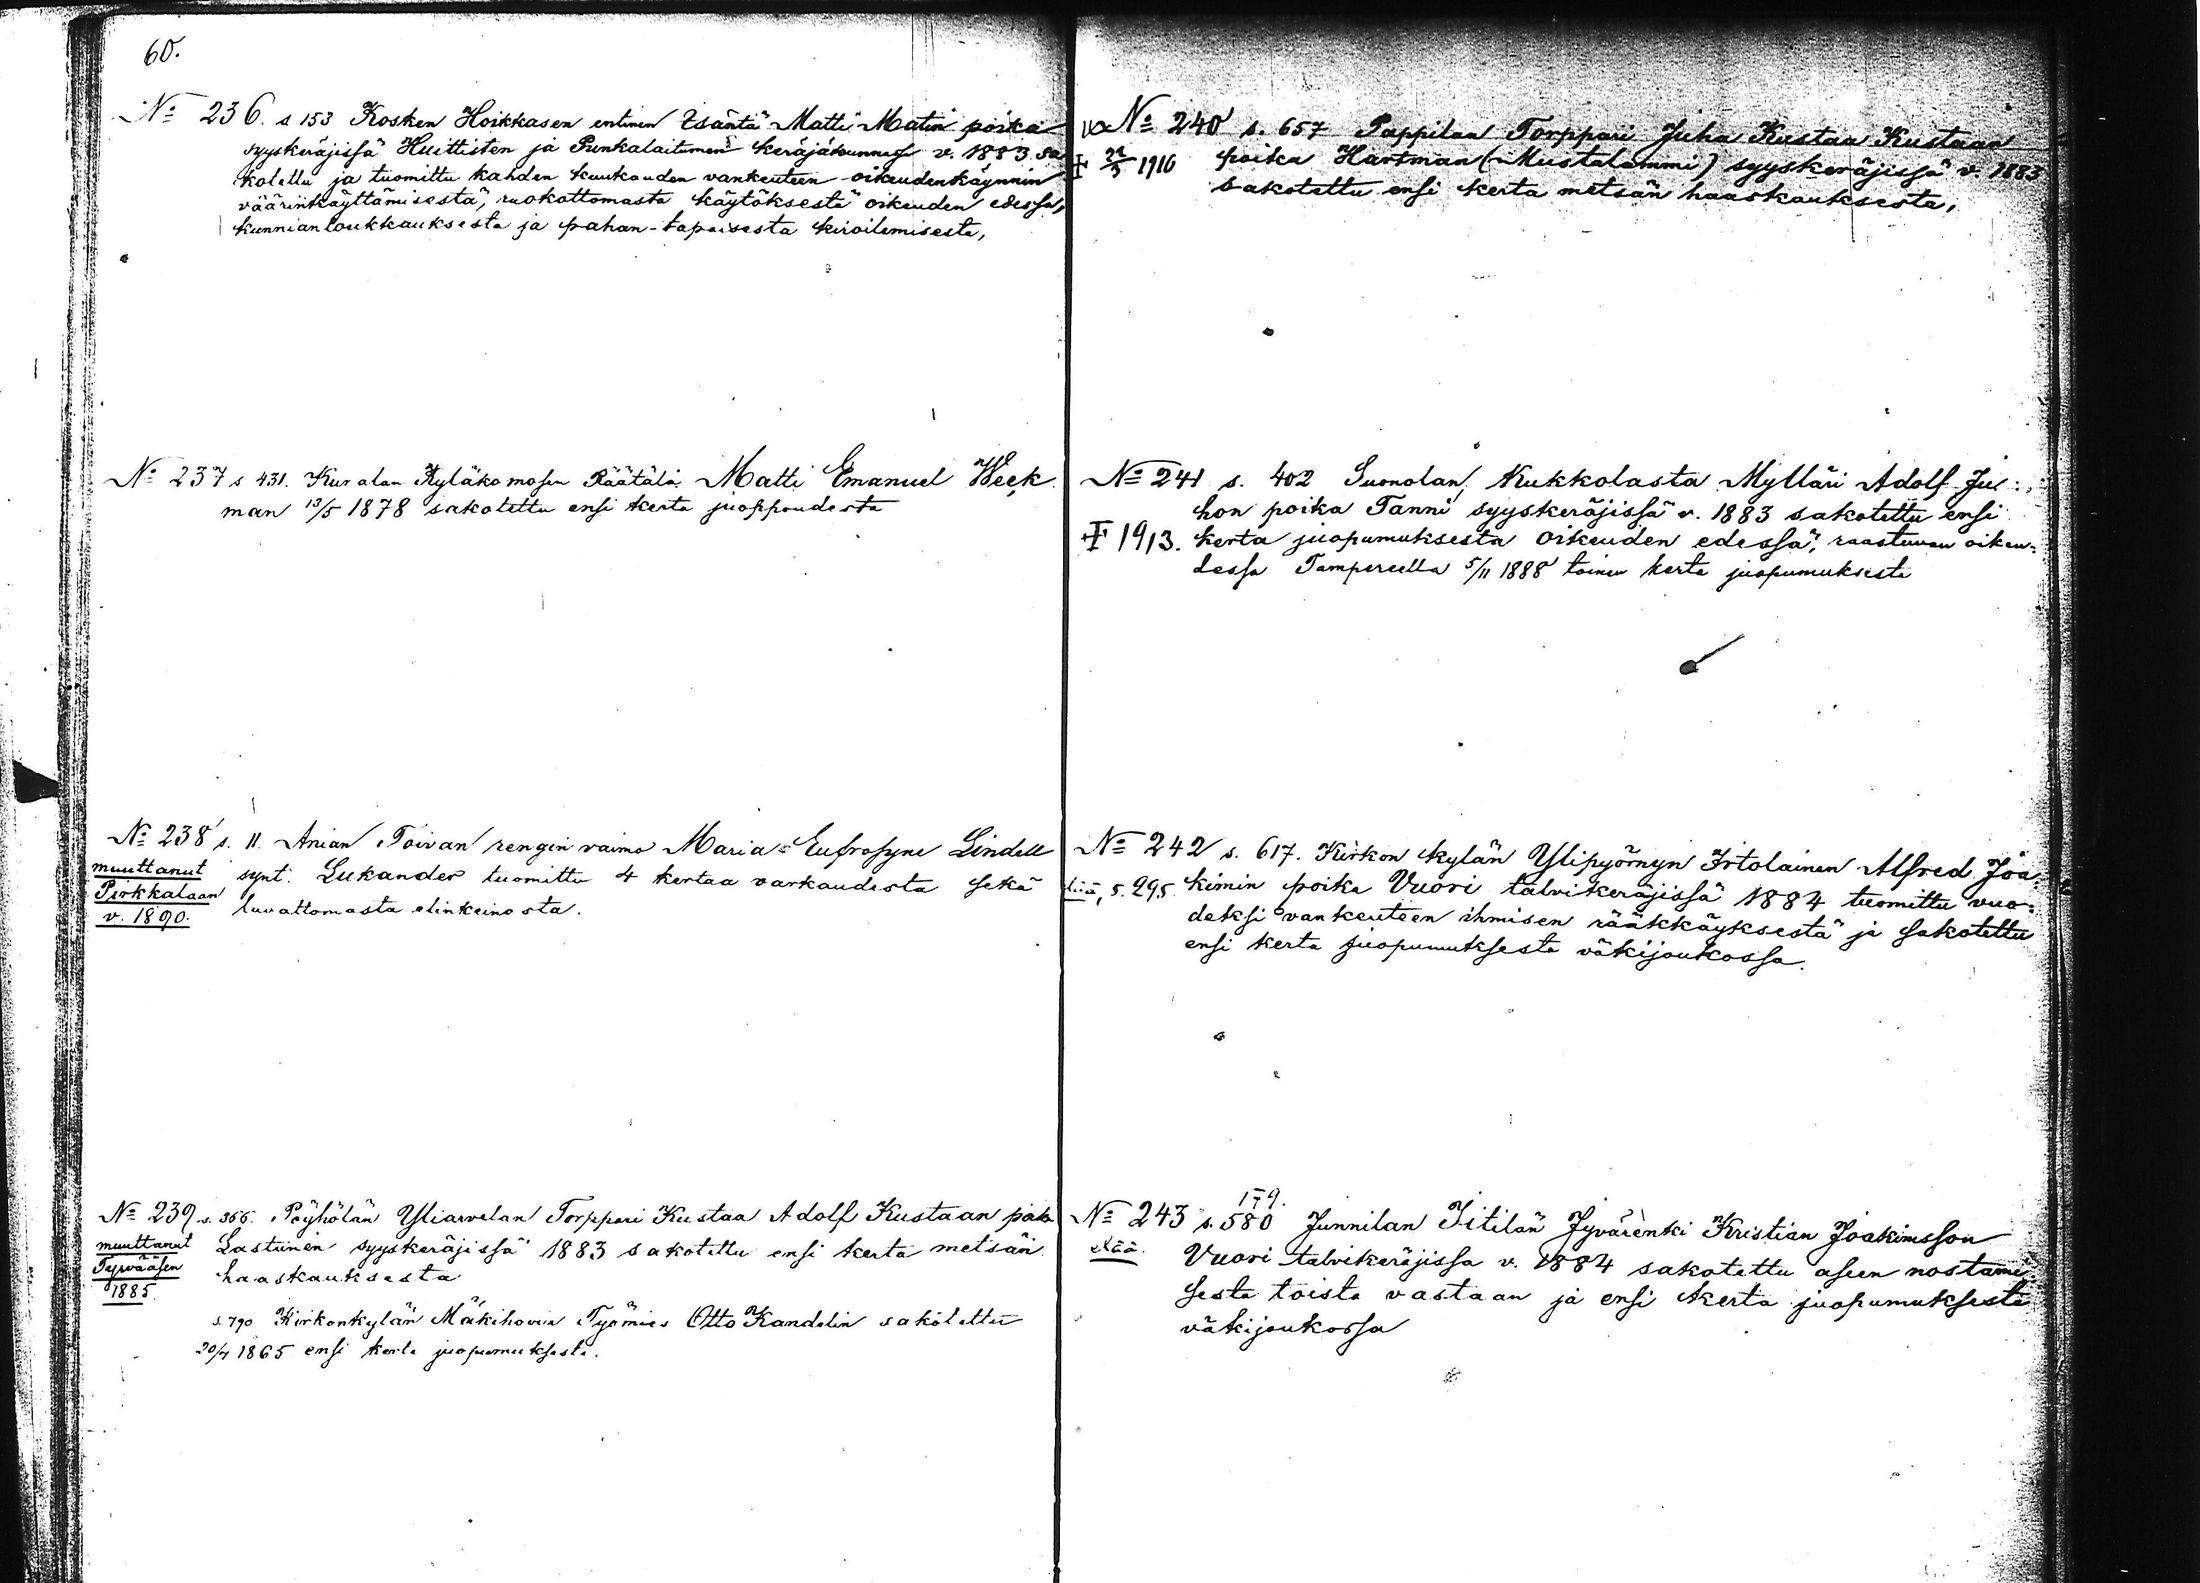 60.
№ 236. s 153 Kosken Hoikkasen entinen Isäntä Matti Matin poika
syyskeräjissä Huittisten ja Punkalaitumen keräjäkunnassa v. 1883 sa
kotettu ja tuomittu kahden kuukauden vankeuteen oikeudenkäynnin
väärinkäyttämisestä, ruokottomasta käytöksestä oikeuden edessä,
kunnianloukkauksesta ja pahan-tapaisesta kiroilemisesta,
№ 237 s 431. Kuralan Kyläkomosen Räätäli Matti Emanuel Weck
man 13/5 1878 sakotettu ensi kerta juoppoudesta
№ 238 s. 11. Anian Toivan rengin vaimo Maria Eufrosyne Lindell
muuttanut synt. Lukander tuomittu 4 kertaa varkaudesta sekä
Pirkkalaan luvattomasta elinkeinosta.
v. 1890.
№ 239 s. 366. Pöyhölän Yliarvelan Torppari Kustaa Adolf Kustaan poika
muuttanut Lastunen syyskeräjissä 1883 sakotettu ensi kerta metsän
Tyrvääsen haaskauksesta
1885
s. 790 Kirkonkylän Mäkihovin Työmies Otto Kandelin sakotettu
20/4 1865 ensi kerta juopumuksesta.
№ 240 s. 657 Pappilan Torppari Juha Kustaa Kustaan
1910 poika Hartman (Mustalammi) syyskeräjissä v. 1883
sakotettu ensi kerta metsän haaskauksesta,
№ 241 s. 402 Suonolan Kukkolasta Mylläri Adolf Ju:
hon poika Tanni syyskeräjissä v. 1883 sakotettu ensi
† 1913. kerta juopumuksesta oikeuden edessä, raastuvan oikeu:
dessa Tampereella 5/11 1888 toinen kerta juopumuksesta
№ 242 s. 617. Kirkon kylän Ylipyörnyn Irtolainen Alfred Joa:
s. 295 kimin poika Vuori talvikeräjissä 1884 tuomittu vuo:
deksi vankeuteen ihmisen rääkkäyksestä ja sakotettu
ensi kerta juopumuksesta väkijoukossa.
179.
№ 243 s. 580 Junnilan Iitilän Jyvärenki Kristian Joakimsson
elää. Vuori talvikeräjissä v. 1884 sakotettu aseen nostami
sesta toista vastaan ja ensi kerta juopumuksesta
väkijoukossa